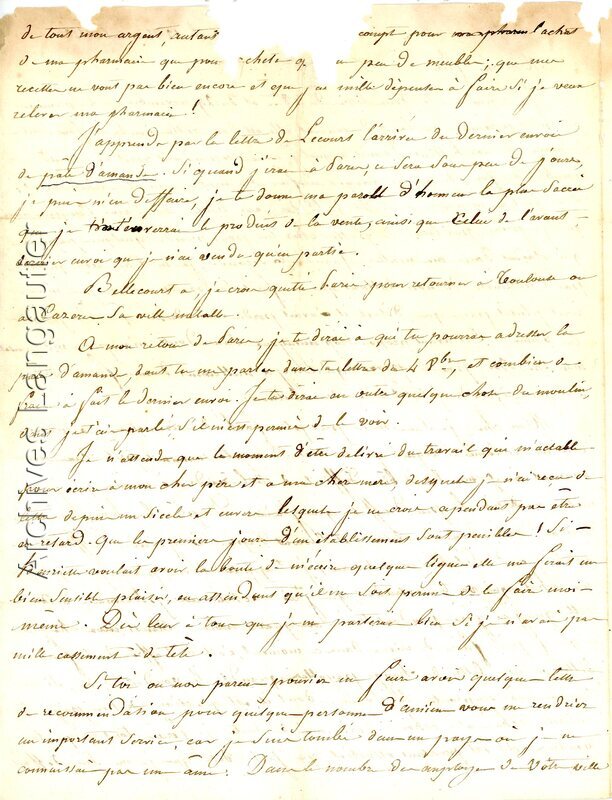 de tout mon argent, autant compt pour ma pharm l'achat
de ma pharmacie, que pour achete q un peu de meubles; que mes
recettes ne vont pas bien encore et que j'ai mille dépenses à faire si je veux
relever ma pharmacie!
J'apprends par la lettre de Lecourt l'arrivée du dernier envoi
de pâte d'amande. Si quand j'irai à Paris, ce sera sous peu de jours,
je puis m'en deffaire, je te donne ma parole d'honneur la plus sacrée
que je t'enverrai le produit de la vente, ainsi que celui de l'avant-
dernier envoi que je n'ai vendu qu'en partie.
Bellecourt a, je crois, quitté Paris pour retourner à Toulouse ou
à Cazeres sa ville natalle.
A mon retour de Paris, je te dirai à qui tu pourras adresser la
pate d'amande, dont tu me parles dans ta lettre du 4 8bre, et combien de
frais à fait le dernier envoi. Je te dirai en outre quelque chose du moulin,
dont je t'ai parlé s'il m'est permis de le voir.
Je n'attends que le moment d'être délivré du travail qui m'accable
pour écrire à mon cher père et à ma chère mère, desquels je n'ai reçu de
lettre depuis un siècle et envers lesquels je ne crois cependant pas être
en retard. Que les premiers jours d'un établissement sont penibles! Si
Henriette voulait avoir la bonté de m'écrire quelques lignes elle me ferait un
bien sensible plaisir, en attendant qu'il me soit permis de le faire moi-
même. Dis leur à tous que je me porterais bien si je n'avais pas
mille cassements de tête.
Si toi ou nos parens pouviez me faire avoir quelques lettres
de recommendation pour quelques personnes d'amiens vous me rendriez
un important service, car je suis tombé dans un pays où je ne
connaissais pas une âme. Dans le nombre des employés de votre ville
Archives Langautier